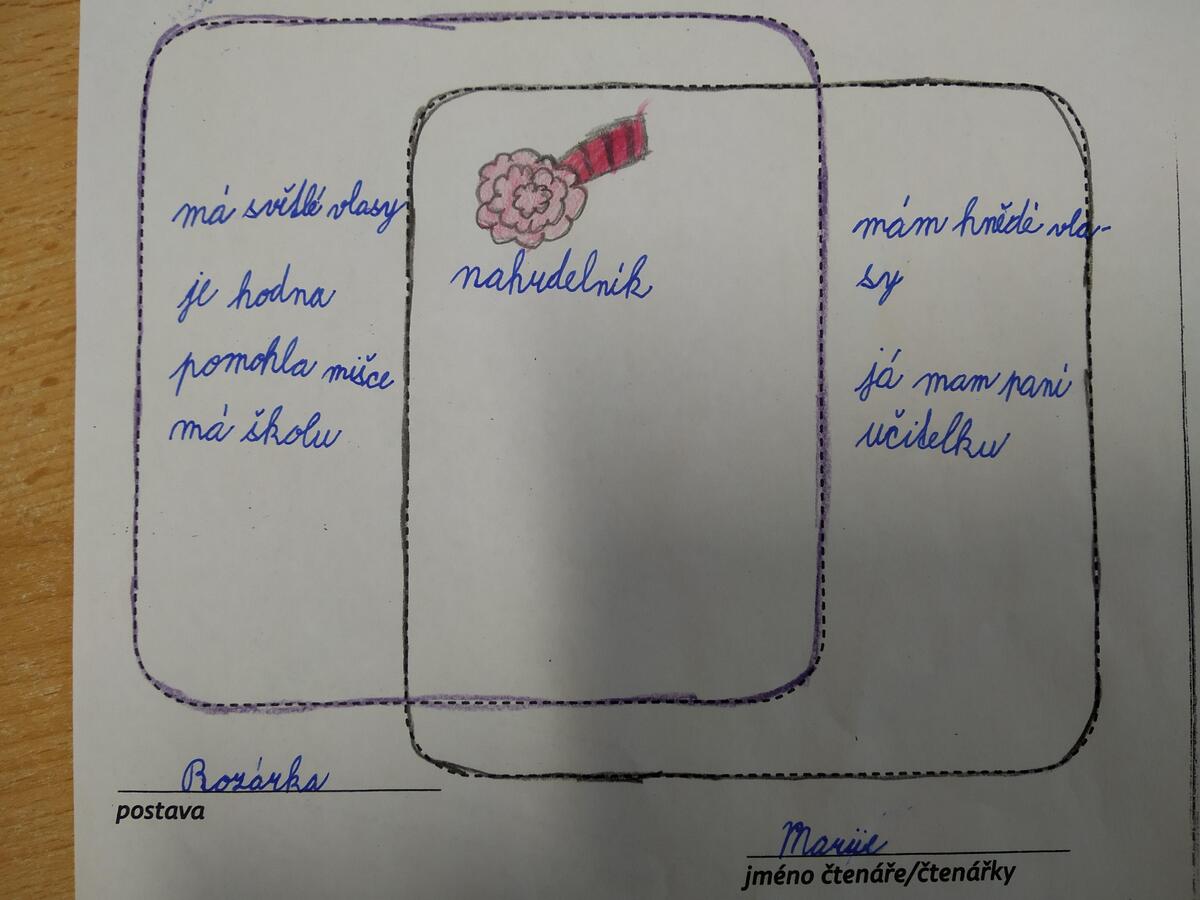 má světlé vlasy
je hodna
pomohla mišce
má školu
nahrdelník
mám hnědé vla-
sy
já mam paní
učitelku
Rozárka
postava
Marije
jméno čtenáře/čtenářky